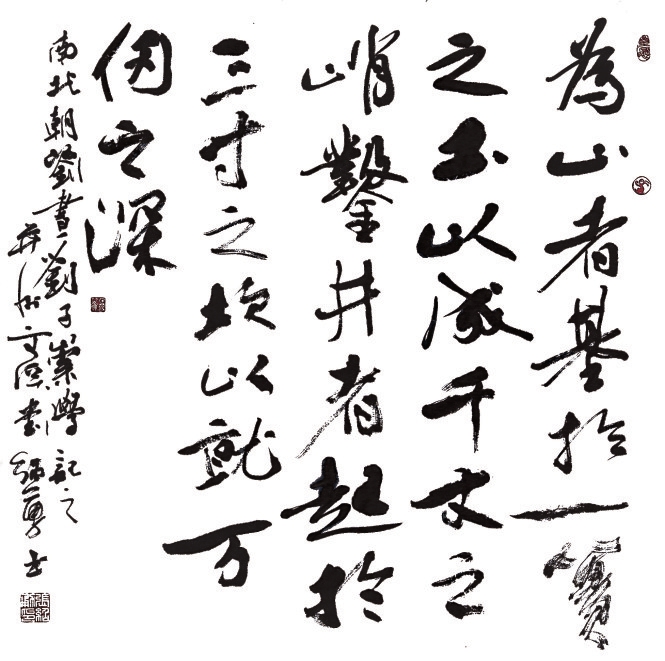 為山者基於一簣
之土以成千丈之
峭鑿井者起於
三寸之坎以就万
仞之深
南北朝劉晝劉子崇學記之
并州 勇書